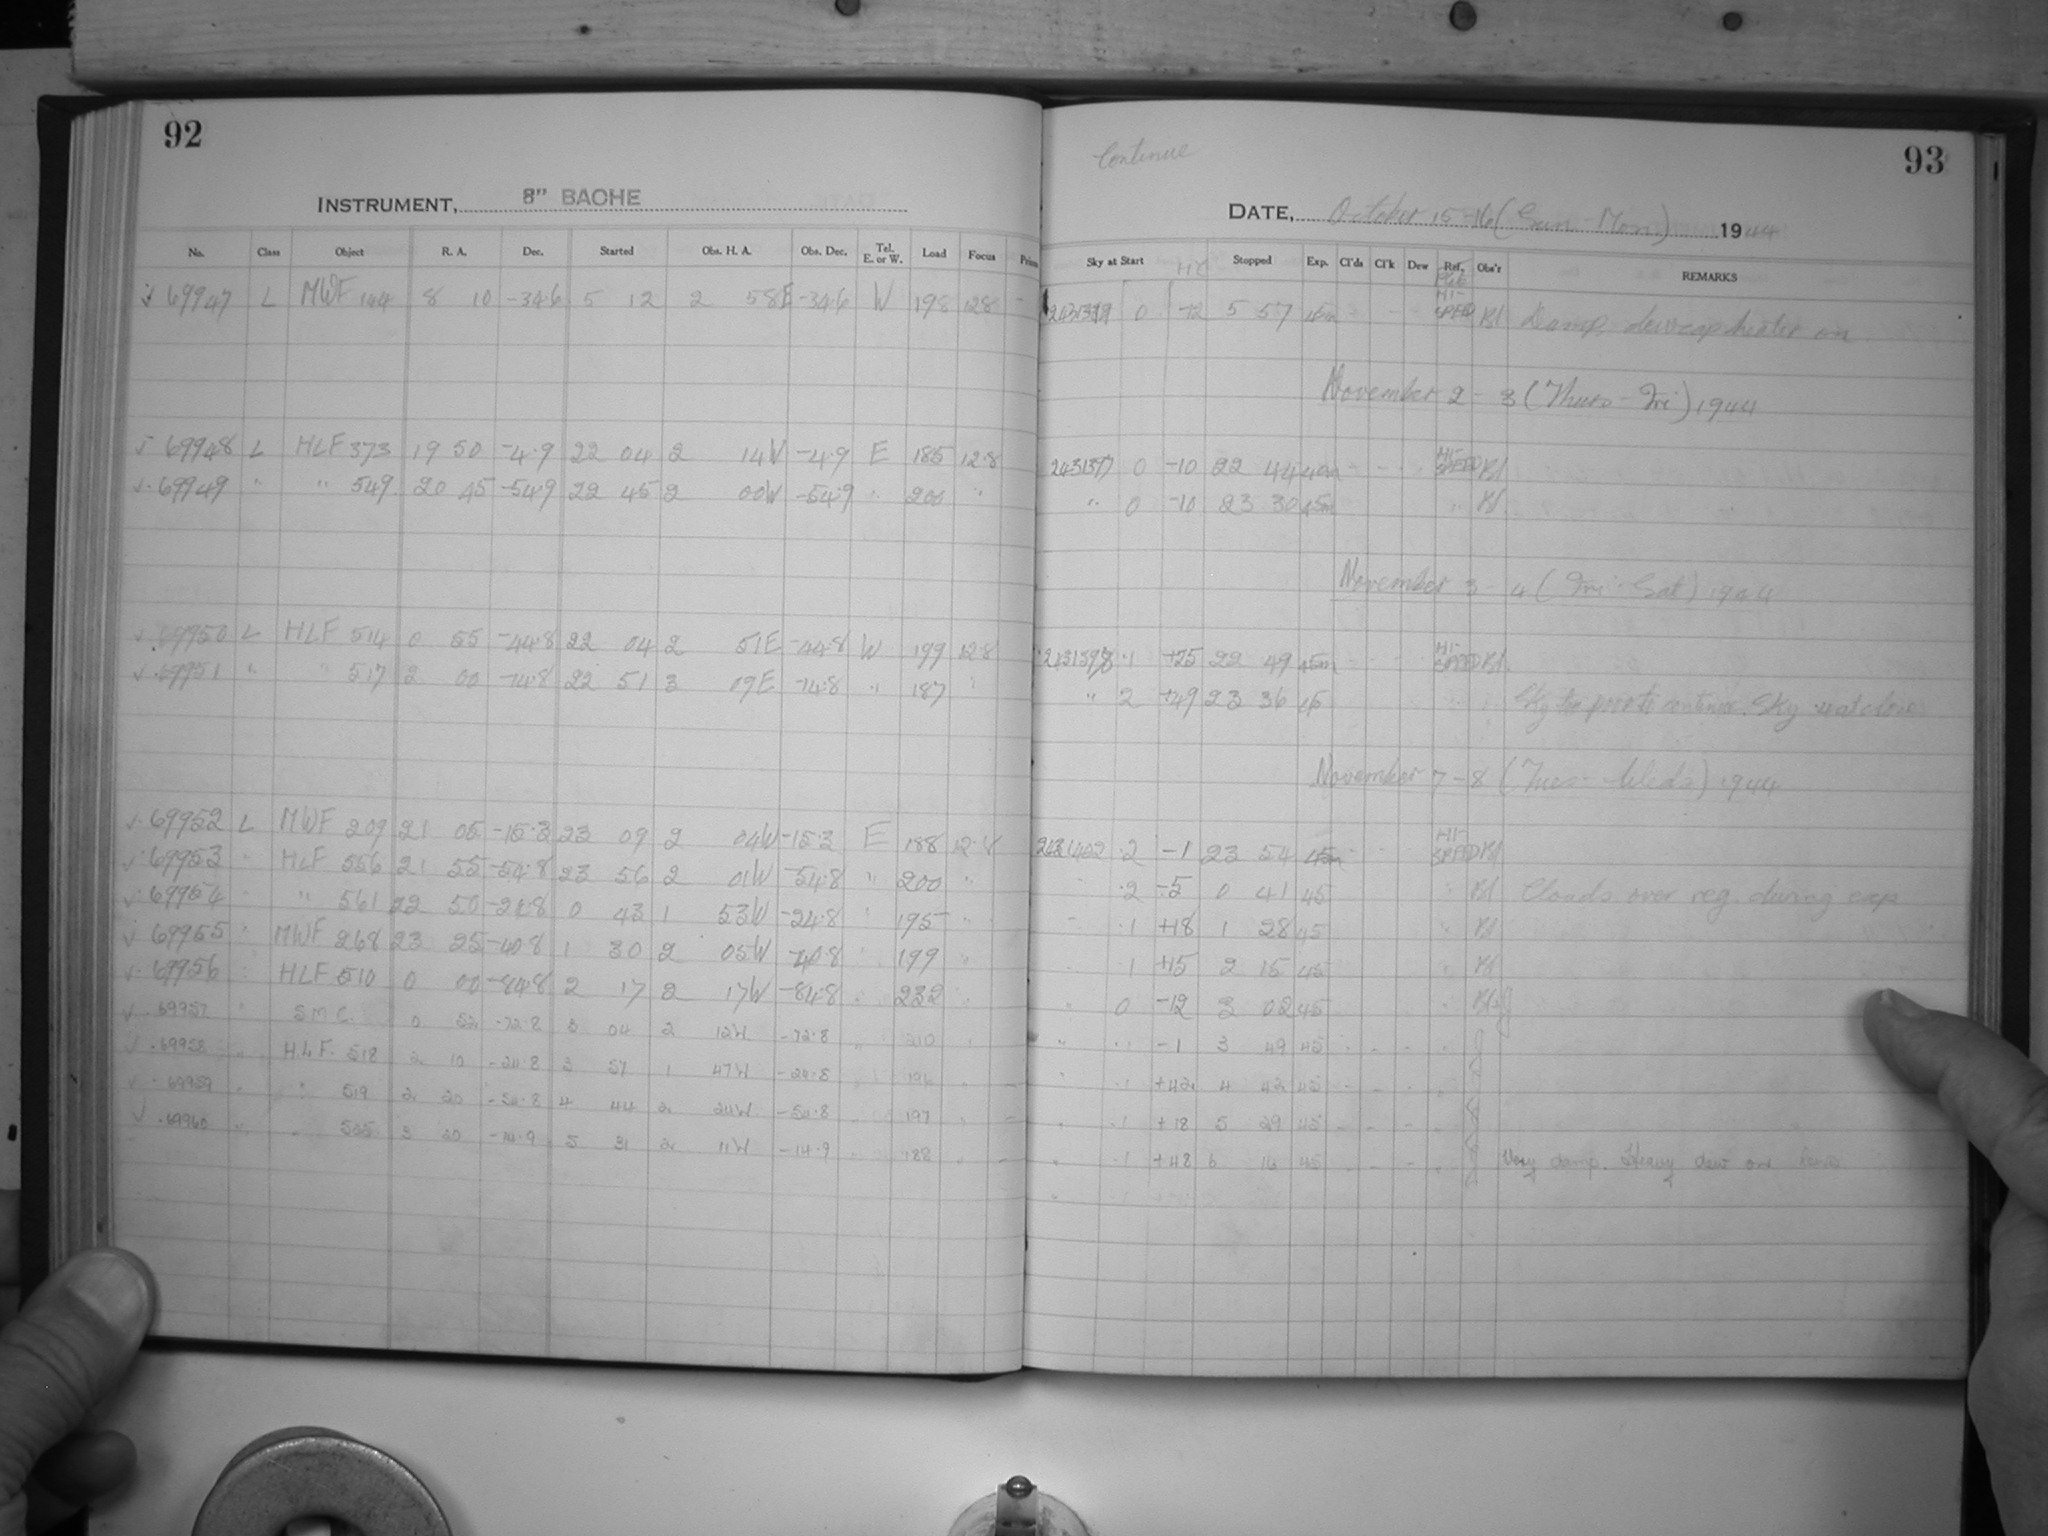 92
INSTRUMENT, 8" BACHE
No. Class Object R. A. Dec. Started Obs. H. A. Obs. Dec. Tel. E. or W. Load Focus
69947 L MWF 144 8 10 -34.6 5 12 2 58E -34.6 W 198 12.8 -
69948 L HLF 373 19 50 -4.9 22 04 2 14W -4.9 E 185 12.8
69949 " " 549 20 45 -54.9 22 45 2 00W -54.9 " 200 "
69950 L HLF 514 0 55 -44.8 22 04 2 51E -44.8 W 199 12.8
69951 " " 517 2 00 -14.8 22 51 3 09E -14.8 " 187 "
69952 L MWF 209 21 05 -15.3 23 09 2 04W -15.3 E 188 12.8
69953 " HLF 556 21 55 -54.8 23 56 2 01W -54.8 " 200 "
69954 " 561 22 50 -24.8 0 43 1 53W -24.8 " 195 "
69955 " MWF 268 23 25 -40.8 1 30 2 05W -40.8 199 "
69956 " HLF 510 0 00 -84.8 2 17 2 17W -84.8 " 232 "
69957 " S.M.C. 0 52 -72.8 3 04 2 12W -72.8 " 210
69958 " H.L.F. 518 2 10 -24.8 3 57 1 47W -24.8 " 196
69959 " " 519 2 20 -54.8 4 44 2 24W -54.8 " 197
69960 " " 505 3 20 -14.9 5 31 2 11W -14.9 " 188
Continue
93
DATE, October 15-16 (Sun.-Mon.) 1944
Sky at Start Stopped Exp. Cl'ds Cl'k Dew Ref. Obs'r REMARKS
0 -12 5 57 45m HI-SPEED Damp, dewcap heater on
November 2 - 3 (Thurs - Fri) 1944
2431397 0 -10 22 44 40m HI-SPEED
" 0 -10 23 30 45m "
November 3 - 4 (Fri - Sat) 1944
2431398 .1 +25 22 49 45m HI-SPEED
" 2 +49 23 36 45 " Sky too poor to continue. Sky
November 7 - 8 (Tues - Weds) 1944
2431402 .2 -1 23 54 45m HI-SPEED
.2 -5 0 41 45 " Clouds over reg. during exp
.1 +18 1 28 45 "
.1 +15 2 15 45 "
" 0 -12 3 02 45 "
" .1 -1 3 49 45
" .1 +42 4 42 45
" .1 +18 5 29 45
" .1 +48 6 16 45 Very damp. Heavy dew on